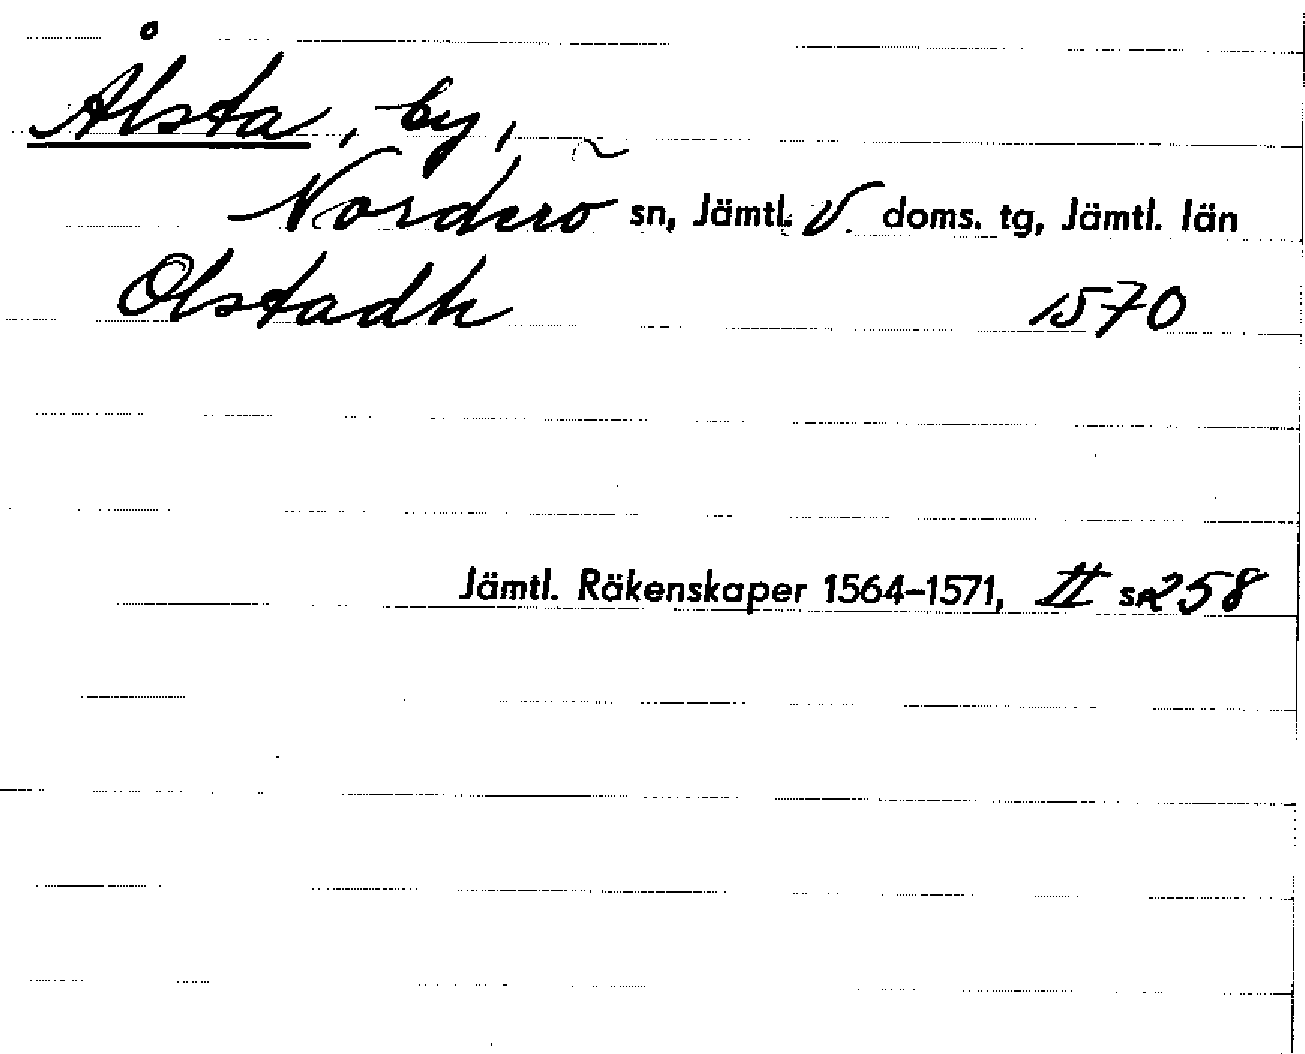 Ålsta, by,
Norderö sn, Jämtl. V. doms. tg, Jämtl. län
Olstadh 1570
Jämtl. Räkenskaper 1564–1571, II s. 258